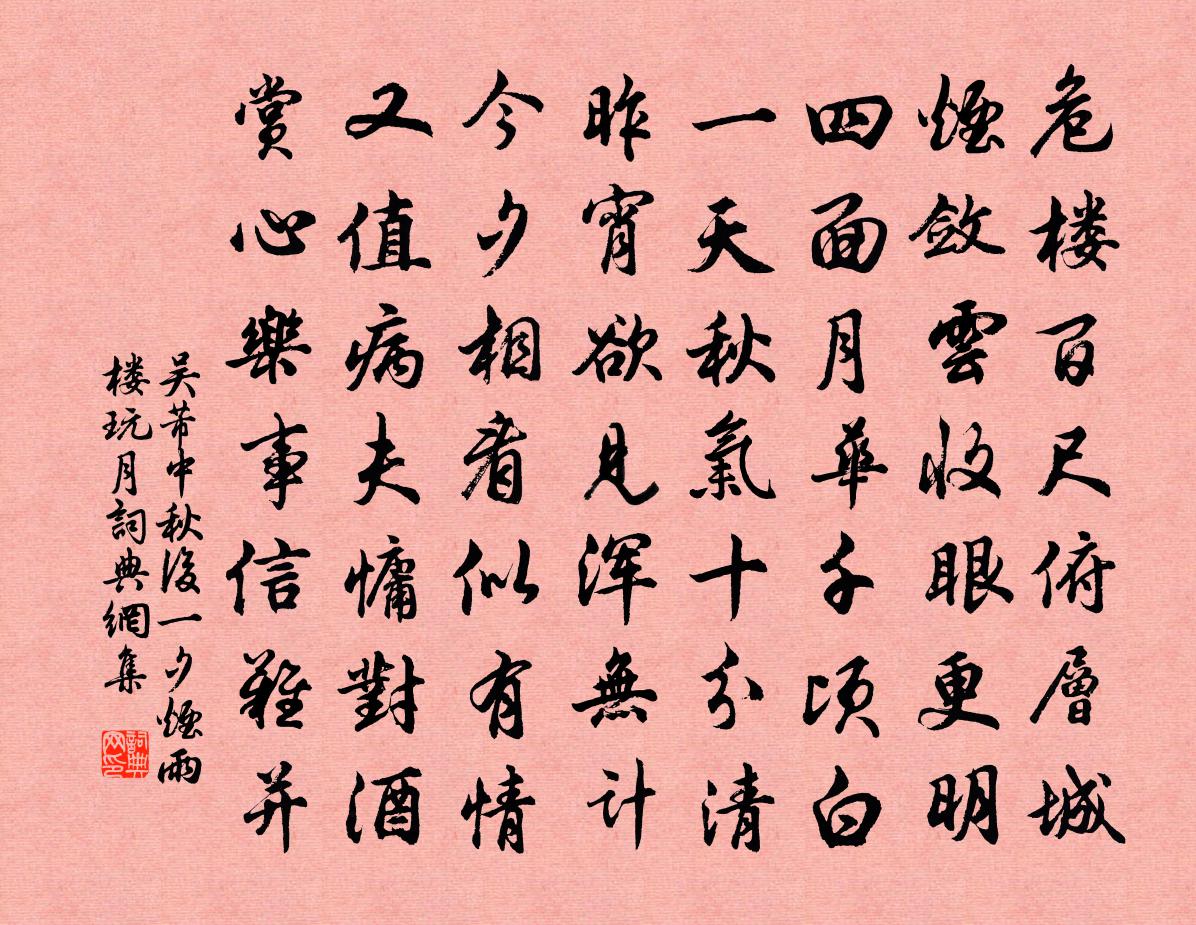 危楼百尺俯層城
煙斂雲收眼更明
四面月華千頃白
一天秋氣十分清
昨宵欲見渾無計
今夕相看似有情
又值病夫慵對酒
賞心樂事信難并
吴芾中秋後一夕煙雨
楼玩月詞典網集
詞典网印